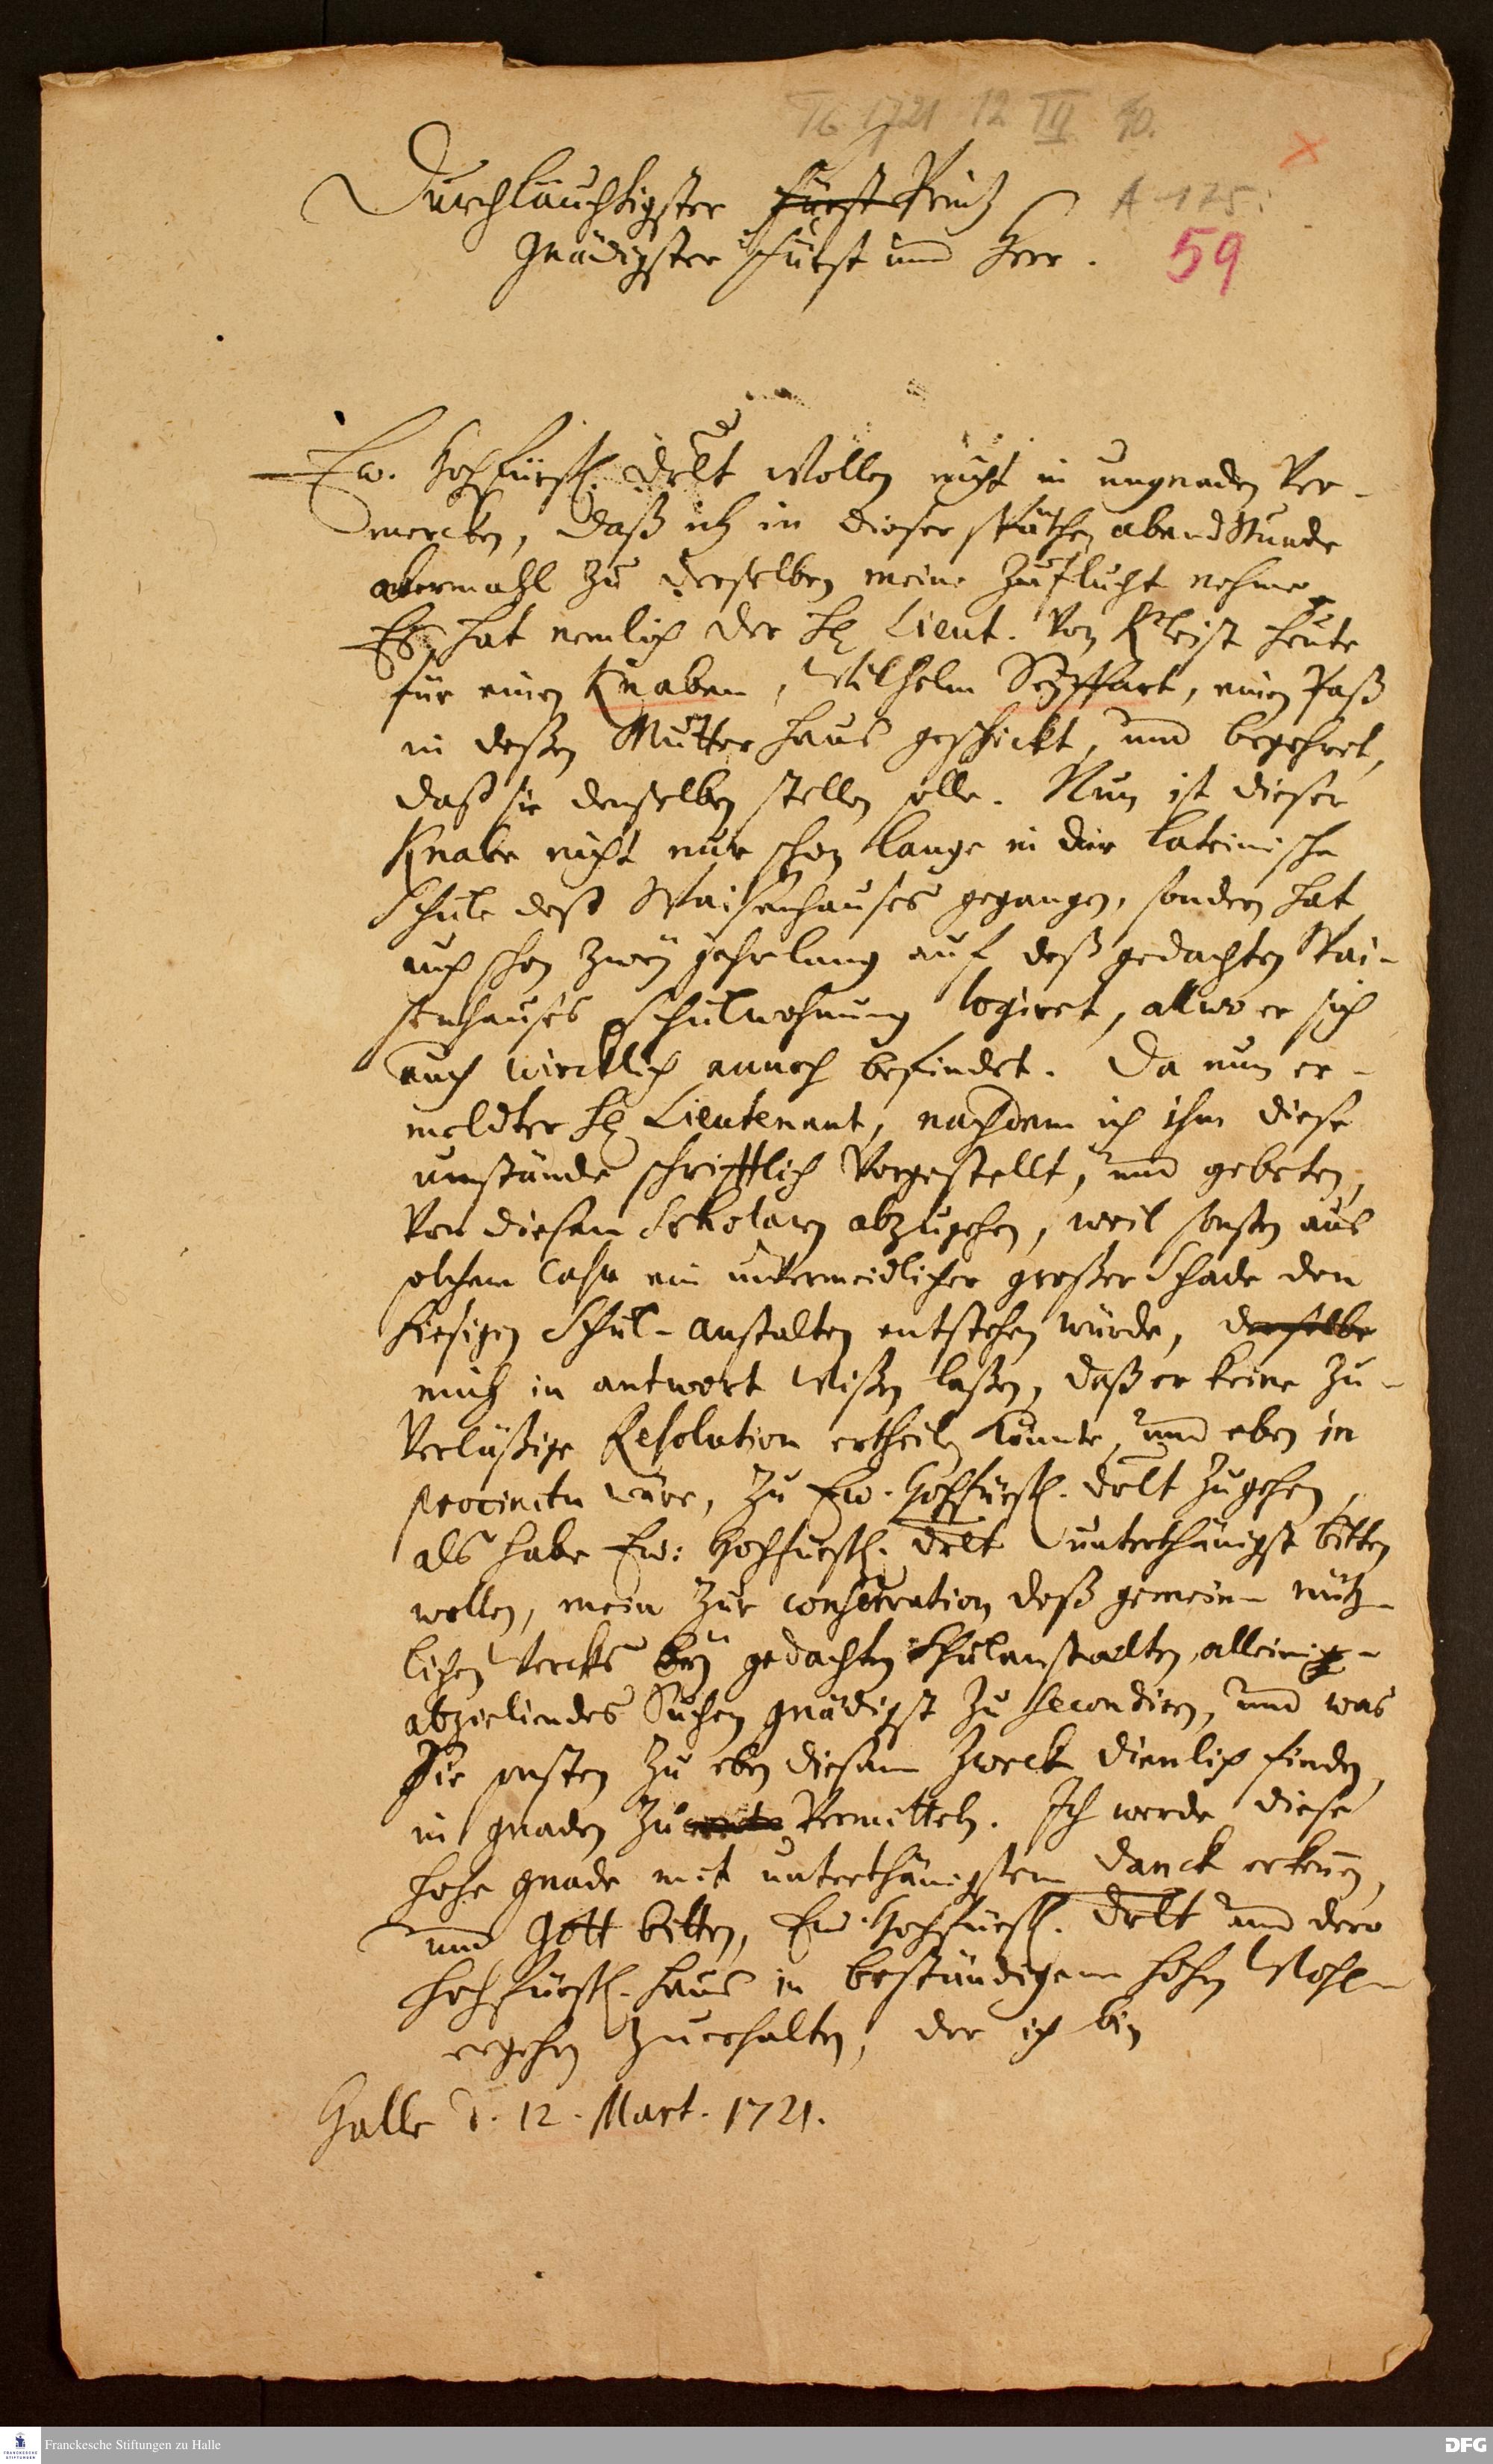 TG 1721 12 III 40.
A 175:
59
Durchläuchtigster Fürst Printz
Gnädigster Fürst und Herr.
Ew. Hochfürstl. Drlt wollen nicht in ungnaden ver-
mercken, daß ich in dieser späthen abend Stunde
abermahl zu derselben meine Zuflucht nehme.
Es hat nemlich der H. Lieut. von Kleist heute
für einen Knaben, Wilhelm Seyffart, einen Paß
in deßen Mutter Haus geschickt, und begehret,
daß sie denselben stellen solle. Nun ist dieser
Knabe nicht nur schon lange in die lateinische
Schule deß Waisenhauses gegangen, sondern hat
auch schon zwey jahrlang auf deß gedachten Wai-
senhauses Schulwohnung logiret, allwo er sich
auch wircklich annoch befindet. Da nun er-
meldter H. Lieutenant, nachdem ich ihm diese
umstände schrifftlich vorgestellt, und gebeten,
von diesem Scholaren abzugehen, weil sonsten aus
solchem Casu ein unvermeidlicher großer Schade den
hiesigen Schul-anstalten entstehen würde, derselbe
mich in antwort wißen laßen, daß er keine zu-
verläßige Resolution ertheilen könnte, und eben in
procinctu wäre, zu Ew. Hochfürstl. Drlt zugehen,
als habe Ew: Hochfürstl. Drlt unterthänigst bitten
wollen, mein zur conservation deß gemein-nütz-
lichen Wercks bey gedachten Schulanstalten, alleinig-
abzielendes Suchen gnädigst zu secondiren, und was
Sie sonsten zu eben diesem Zweck dienlich finden,
in gnaden zu vermitteln. Ich werde diese
hohe gnade mit unterthänigstem Danck erkennen,
und Gott bitten, Ew. Hochfürstl. Drlt und dero
Hochfürstl. Haus in beständigem hohen Wohl-
ergehen zuerhalten, der ich bin
Halle d. 12. Mart. 1721.
Franckesche Stiftungen zu Halle
FRANCKESCHE
STIFTUNGEN
DFG